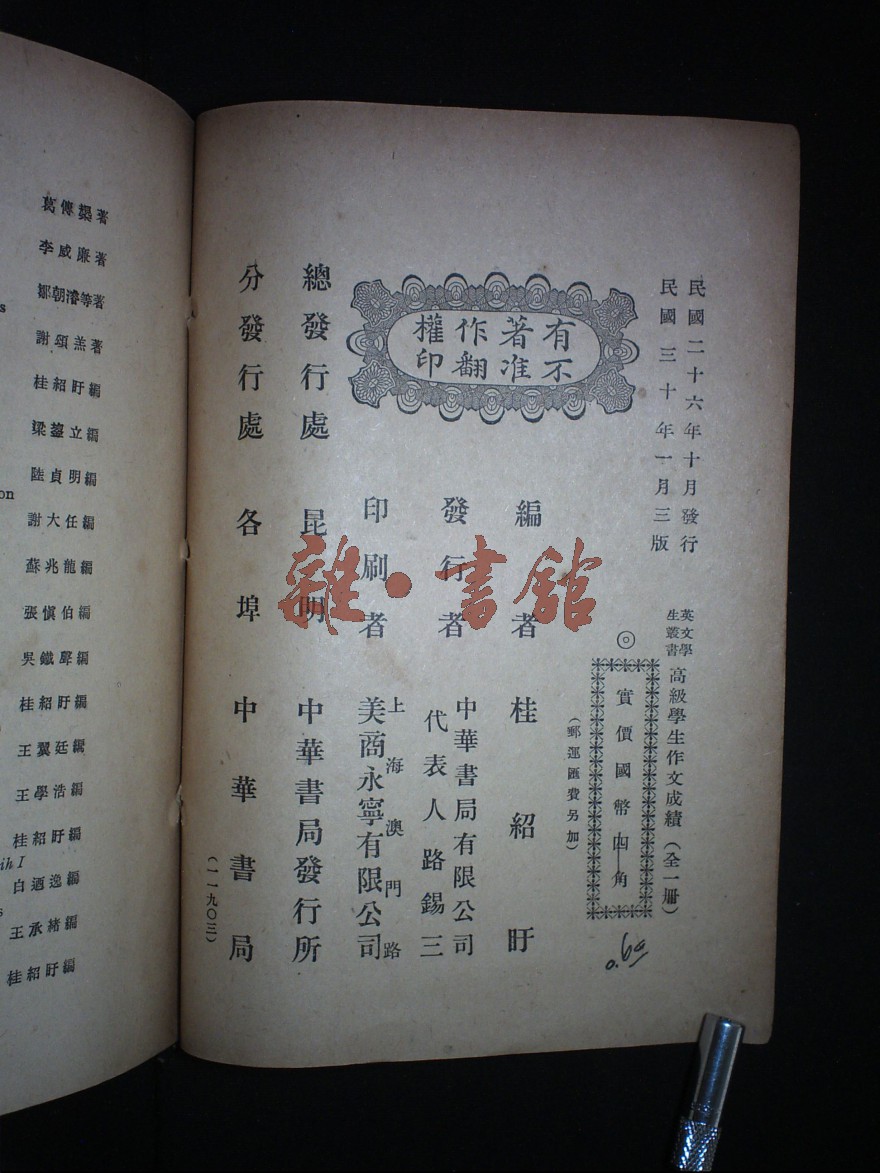 民國二十六年十月發行
民國三十年一月三版
英文學生叢書
高級學生作文成績（全一册）
◎
實價國幣四角
（郵運匯費另加）
有著作權
不准翻印
編者 桂紹盱
發行者 中華書局有限公司
代表人路錫三
印刷者 上海澳門路
美商永寧有限公司
總發行處 昆明 中華書局發行所
分發行處 各埠 中華書局
（一一九〇三）
雜·書館
葛傳槼著
李威廉著
鄒朝濬等著
謝頌羔著
桂紹盱編
梁鋆立編
陸貞明編
謝大任編
蘇兆龍編
張慎伯編
吳鐵聲編
桂紹盱編
王翼廷編
王學浩編
桂紹盱編
白迺逸編
王承緒編
桂紹盱編